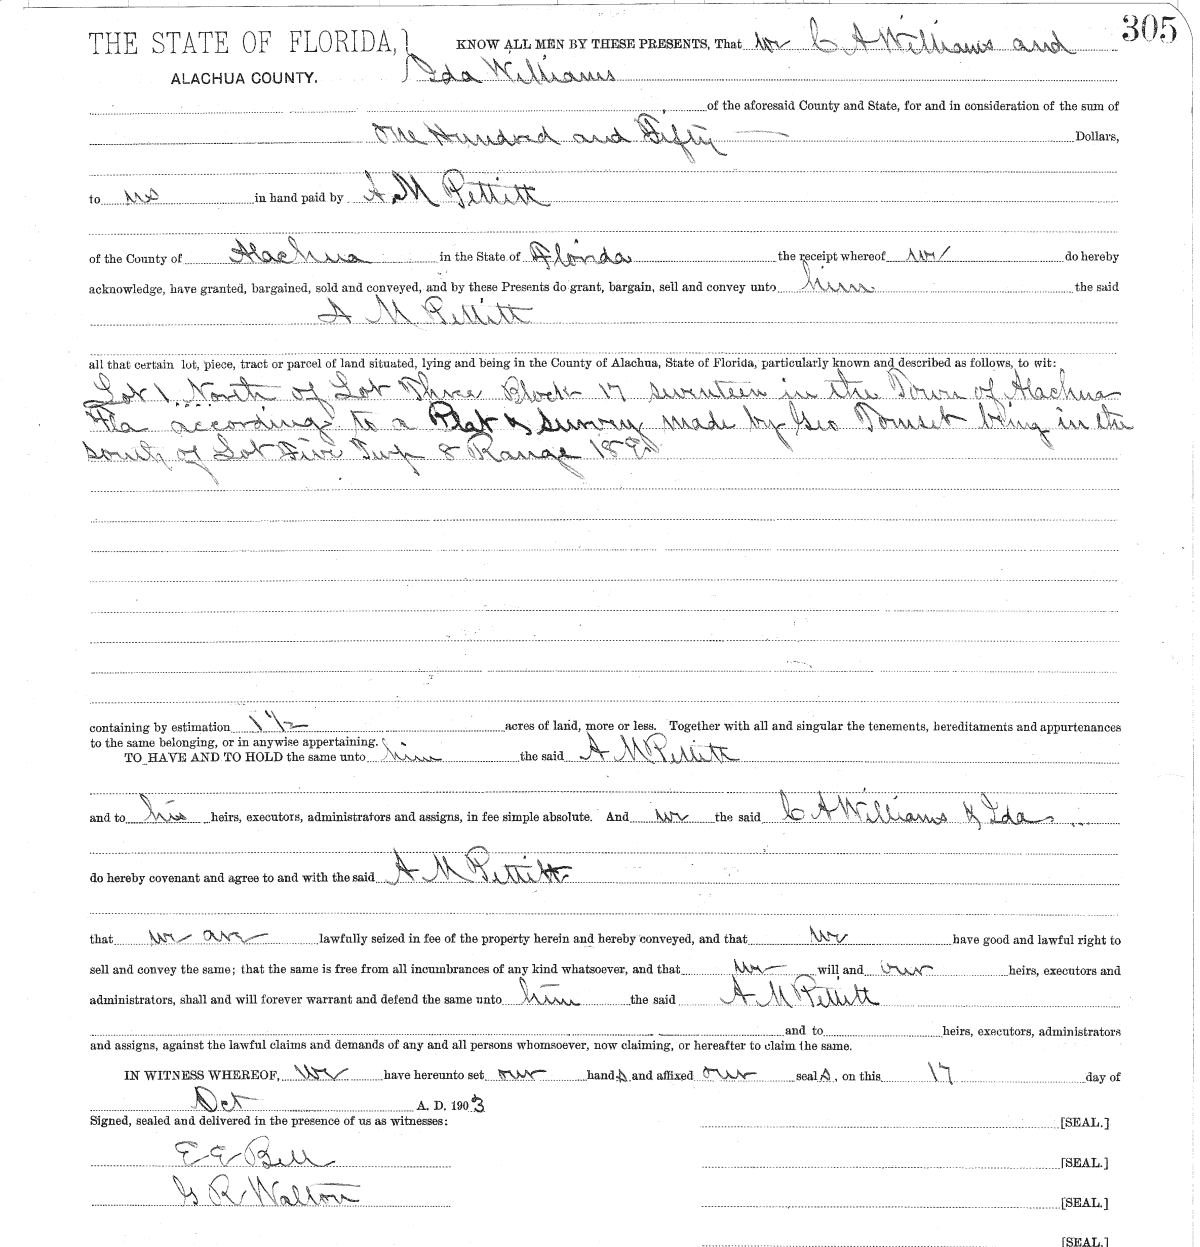 305
THE STATE OF FLORIDA, } KNOW ALL MEN BY THESE PRESENTS, That we C A Williams and
ALACHUA COUNTY. Ida Williams
of the aforesaid County and State, for and in consideration of the sum of
One Hundred and Fifty — Dollars,
to us in hand paid by A. M Pettitt
of the County of Alachua in the State of Florida the receipt whereof we do hereby
acknowledge, have granted, bargained, sold and conveyed, and by these Presents do grant, bargain, sell and convey unto him the said
A M Pettitt
all that certain lot, piece, tract or parcel of land situated, lying and being in the County of Alachua, State of Florida, particularly known and described as follows, to wit:
Lot 1 North of Lot Three Block 17 seventeen in the Town of Alachua
Fla according to a Plat & Survey made by Geo being in the
South of Lot Five Twp 8 Range 18
containing by estimation 1 1/2 acres of land, more or less. Together with all and singular the tenements, hereditaments and appurtenances
to the same belonging, or in anywise appertaining.
TO HAVE AND TO HOLD the same unto him the said A M Pettitt
and to his heirs, executors, administrators and assigns, in fee simple absolute. And we the said C A Williams & Ida
do hereby covenant and agree to and with the said A M Pettitt
that we are lawfully seized in fee of the property herein and hereby conveyed, and that we have good and lawful right to
sell and convey the same; that the same is free from all incumbrances of any kind whatsoever, and that we will and our heirs, executors and
administrators, shall and will forever warrant and defend the same unto him the said A M Pettitt
and to heirs, executors, administrators
and assigns, against the lawful claims and demands of any and all persons whomsoever, now claiming, or hereafter to claim the same.
IN WITNESS WHEREOF, We have hereunto set our hands and affixed our seals, on this 17 day of
Oct A. D. 1903
Signed, sealed and delivered in the presence of us as witnesses: [SEAL.]
E E Bell [SEAL.]
G R Walton [SEAL.]
[SEAL.]